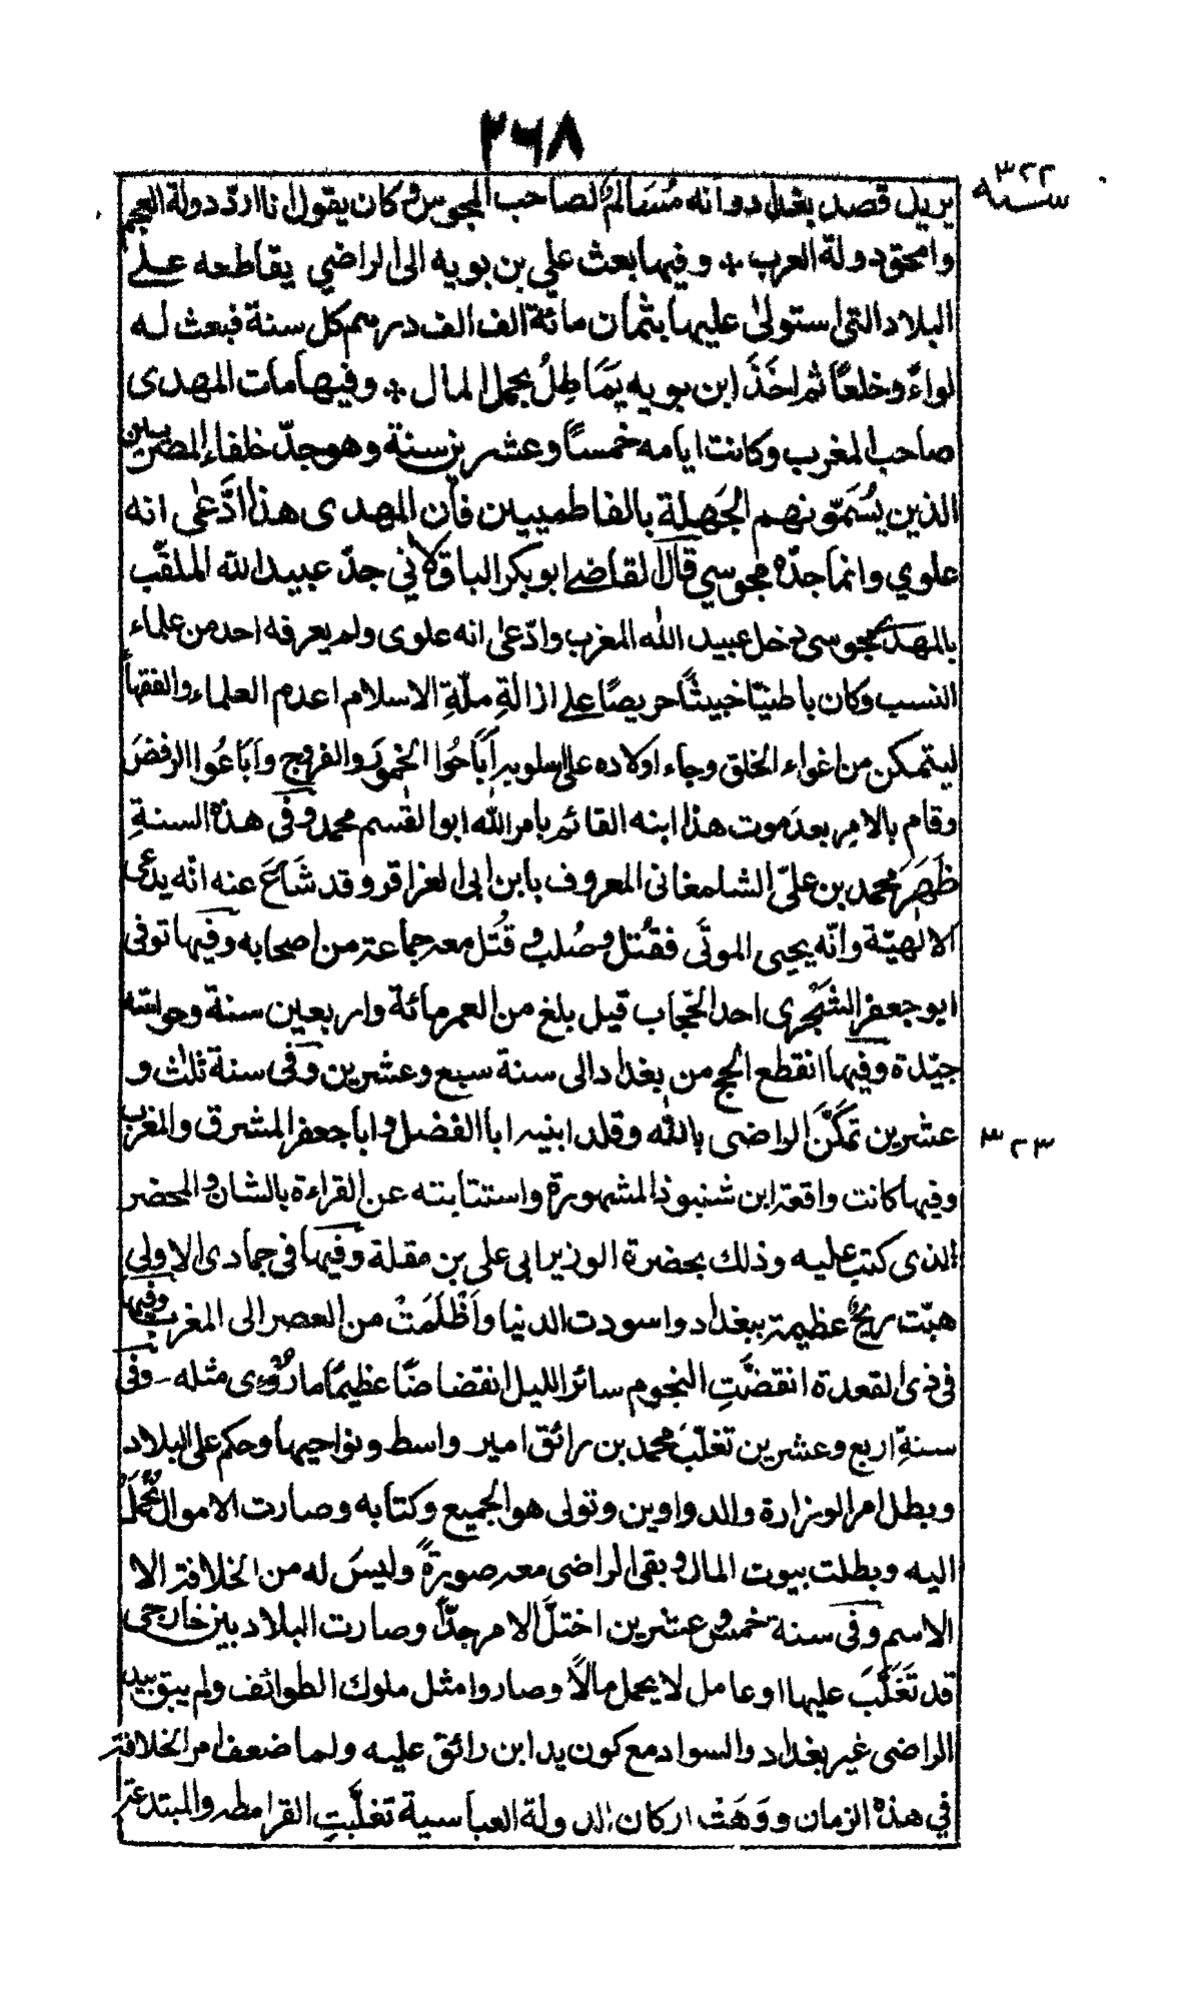 ٢٦٨
سنة ٣٢٢
يريد قصد بغداد وانه مُسَالمٌ لصاحب المجوس وكان يقول انا اردّ دولة العجم
وامحق دولة العرب * وفيها بعث علي بن بويه الى الراضي يقاطعه على
البلاد التي استولى عليها بثمان مائة الف الف درهم كل سنة فبعث له
لواءً وخلعًا ثم اخَذَ ابن بويه يمَاطِلُ بحمل المال * وفيها مات المهدى
صاحب المغرب وكانت ايامه خمسًا وعشرين سنة وهو جدّ خلفاء المصريين
الذين يُسَمّونهم الجَهلة بالفاطميين فان المهدى هذا ادَّعٰى انه
علوي وانما جدّه مجوسي قال القاضے ابو بكر الباقلاني جدّ عبيد الله الملقّب
بالمهدي مجوسى دخل عبيد الله المغرب وادّعى انه علوى ولم يعرفه احد من علماء
النسب وكان باطنيّا خبيثًا حريصًا على ازالةِ ملّةِ الاسلام اعدم العلماء والفقهاء
ليتمكن من اغواء الخلق وجاء اولاده على اسلوبه اَبَاحُوا الخمورَ والفروج واَبَاعُوا الرفضَ
وقام بالامرِ بعدَ موت هذا ابنه القائم بامر الله ابو القٰسم محمد وفى هذه السنةِ
ظَهَرَ محمد بن علىّ الشلمغانى المعروف بابن ابى العزاقر وقد شَاعَ عنه انّه يدعى
الالٰهيّة وانّه يحيى الموتٰى فقُتل وصُلب وقُتل معه جماعة من اصحابه وفيها توفى
ابو جعفر الشجرى احد الحجّاب قيل بلغ من العمر مائة واربعين سنة وحواسّه
جيّدة وفيها انقطع الحج من بغداد الى سنة سبع وعشرين وفى سنة ثلٰث و
عشرين تمكّنَ الراضى بالله وقلد ابنيه ابا الفضل وابا جعفر المشرق والمغرب
٣٢٣
وفيها كانت واقعة ابن شنبوذ المشهورة واستتابته عن القراءة بالشان والمحضر
الذى كتب عليه وذلك بحضرة الوزير ابى على بن مقلة وفيها فى جمادى الاولى
هبّت ريحٌ عظيمة ببغداد واسودت الدنيا واَظْلَمَتْ من العصر الى المغرب وفيها
فى ذى القعدة انقضّتِ النجوم سائر الليل انقضاضًا عظيمًا ما رُؤى مثله - وفى
سنةِ اربع وعشرين تغلّبَ محمد بن رائق امير واسط ونواحيها وحكم على البلاد
وبطل امر الوزارة والدواوين وتولى هو الجميع وكتابه وصارت الاموال تُحمَلُ
اليه وبطلت بيوت المال وبقى الراضى معه صورةً وليسَ له من الخلافة الا
الاسم وفى سنة خمس وعشرين اختلّ الامر جدّا وصارت البلاد بين خارجى
قد تَغَلّبَ عليها او عامل لا يحمل مالًا وصاروا مثل ملوك الطوائف ولم يبق بيد
الراضى غير بغداد والسواد مع كون يد ابن رائق عليه ولما ضعف امر الخلافة
في هذه الزمان ووَهَتْ اركان الدولة العباسية تغلّبتِ القرامطه والمبتدعة